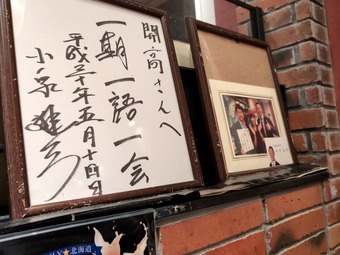 開高さんへ
一期一語一会
平成三十年五月十四日
小泉
★北海道